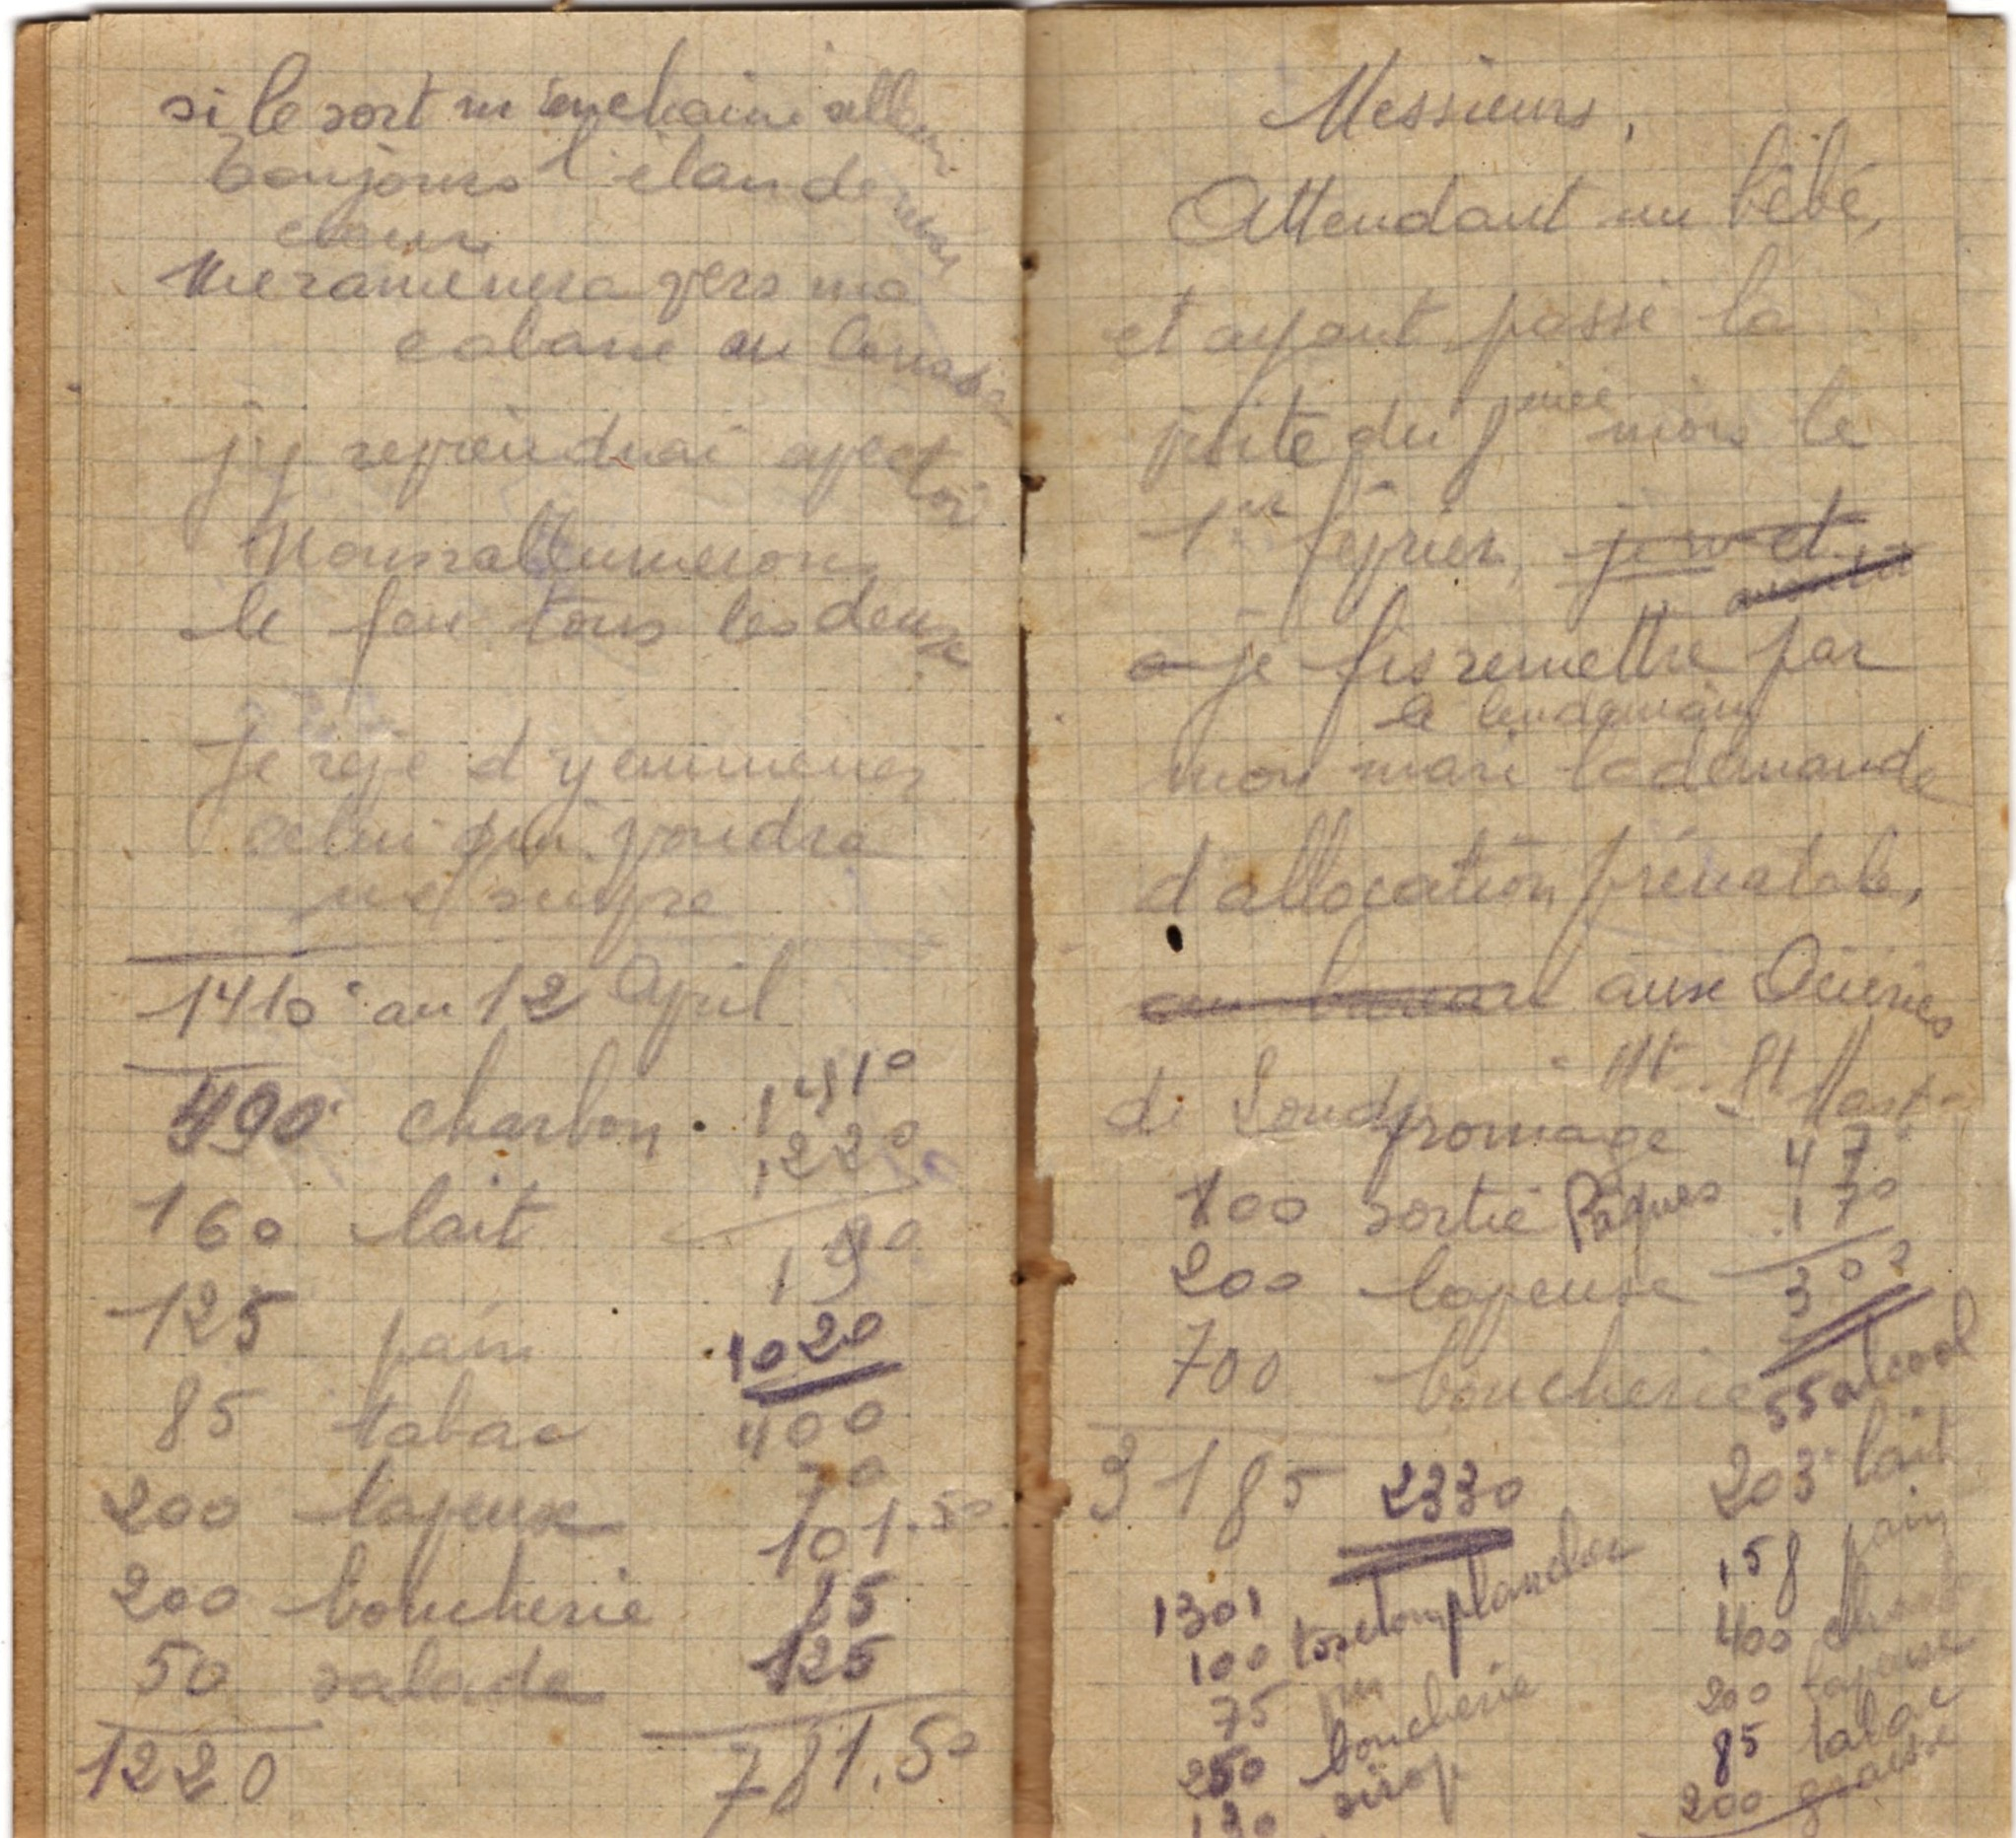 si le sort m'enchaine ailleurs
toujours l'élan de mon
coeur
me ramènera vers ma
cabane au Canada
j'y reprendrai avec toi
Nous rallumerons
le feu tous les deux
Je rêve d'y emmener
celui qui voudra
me suivre
1410 au 12 Avril
490 charbon. 1410
1220
160 lait
190
125 pain
1020
85 tabac 400
70
200 laveuse 101.50
200 boucherie 85
50 salade 125
1220 781.50
Messieurs,
Attendant un bébé,
et ayant passé la
visite du 8ème mois le
1er février,
je fis remettre par
le lendemain
mon mari la demande
d'allocation prénatale,
aux Aciéries
de
fromage 47
800 sortie Pâques 170
200 laveuse 302
700 boucherie 55 alcool
3185 2330 203 lait
158 pain
1301
100 400
75 200 laveuse
250 boucherie 85 tabac
130 sirop 200 graisse